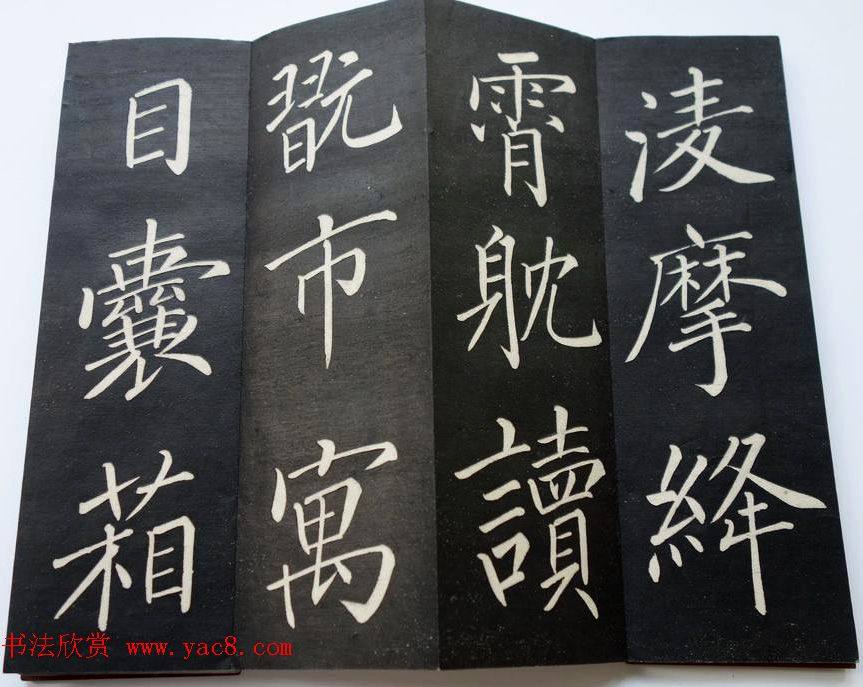 凌摩絳
霄耽讀
翫市寓
目囊箱
书法欣赏 www.yac8.com